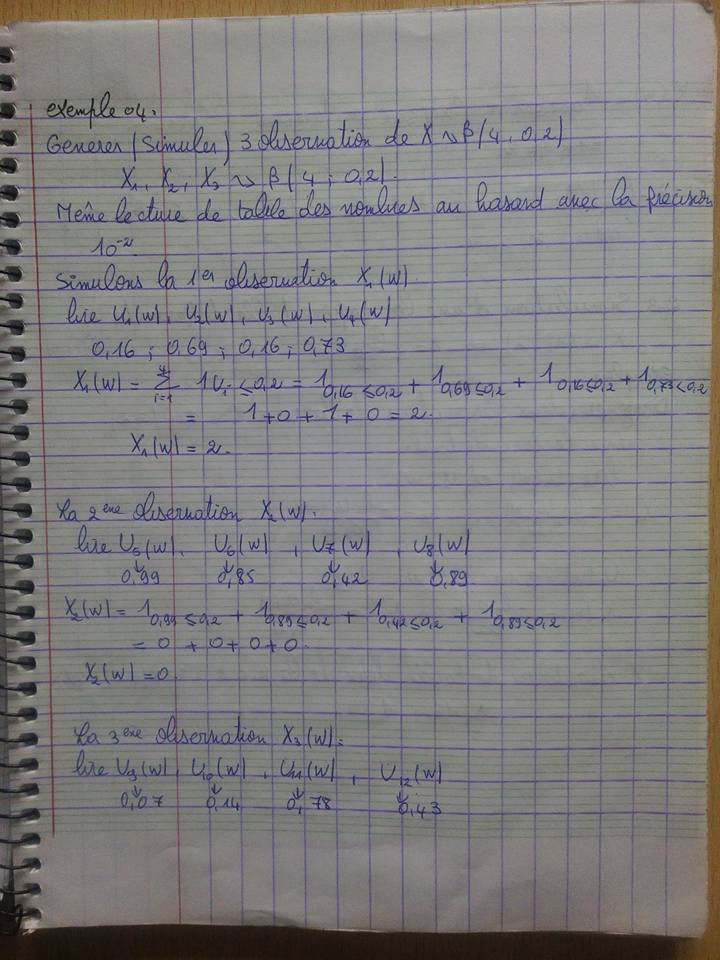 exemple 04.
Generer (Simuler) 3 observation de X ↝ β(4, 0,2)
X₁, X₂, X₃ ↝ β(4 ; 0,2).
Même lecture de table des nombres au hasard avec la précision
10⁻²
Simulons la 1er observation X₁(w).
lire U₁(w), U₂(w), U₃(w), U₄(w)
0,16 ; 0,69 ; 0,16 ; 0,73
X₁(w) = Σ_{i=1}^{4} 1_{Uᵢ ≤ 0,2} = 1_{0,16 ≤ 0,2} + 1_{0,69 ≤ 0,2} + 1_{0,16 ≤ 0,2} + 1_{0,73 ≤ 0,2}
= 1 + 0 + 1 + 0 = 2.
X₁(w) = 2.
La 2ème observation X₂(w).
lire U₅(w), U₆(w), U₇(w), U₈(w)
↓ ↓ ↓ ↓
0,99 0,85 0,42 0,89
X₂(w) = 1_{0,99 ≤ 0,2} + 1_{0,89 ≤ 0,2} + 1_{0,42 ≤ 0,2} + 1_{0,89 ≤ 0,2}
= 0 + 0 + 0 + 0.
X₂(w) = 0
La 3ème observation X₃(w) =
lire U₉(w), U₁₀(w), U₁₁(w), U₁₂(w)
↓ ↓ ↓ ↓
0,07 0,14 0,78 0,43